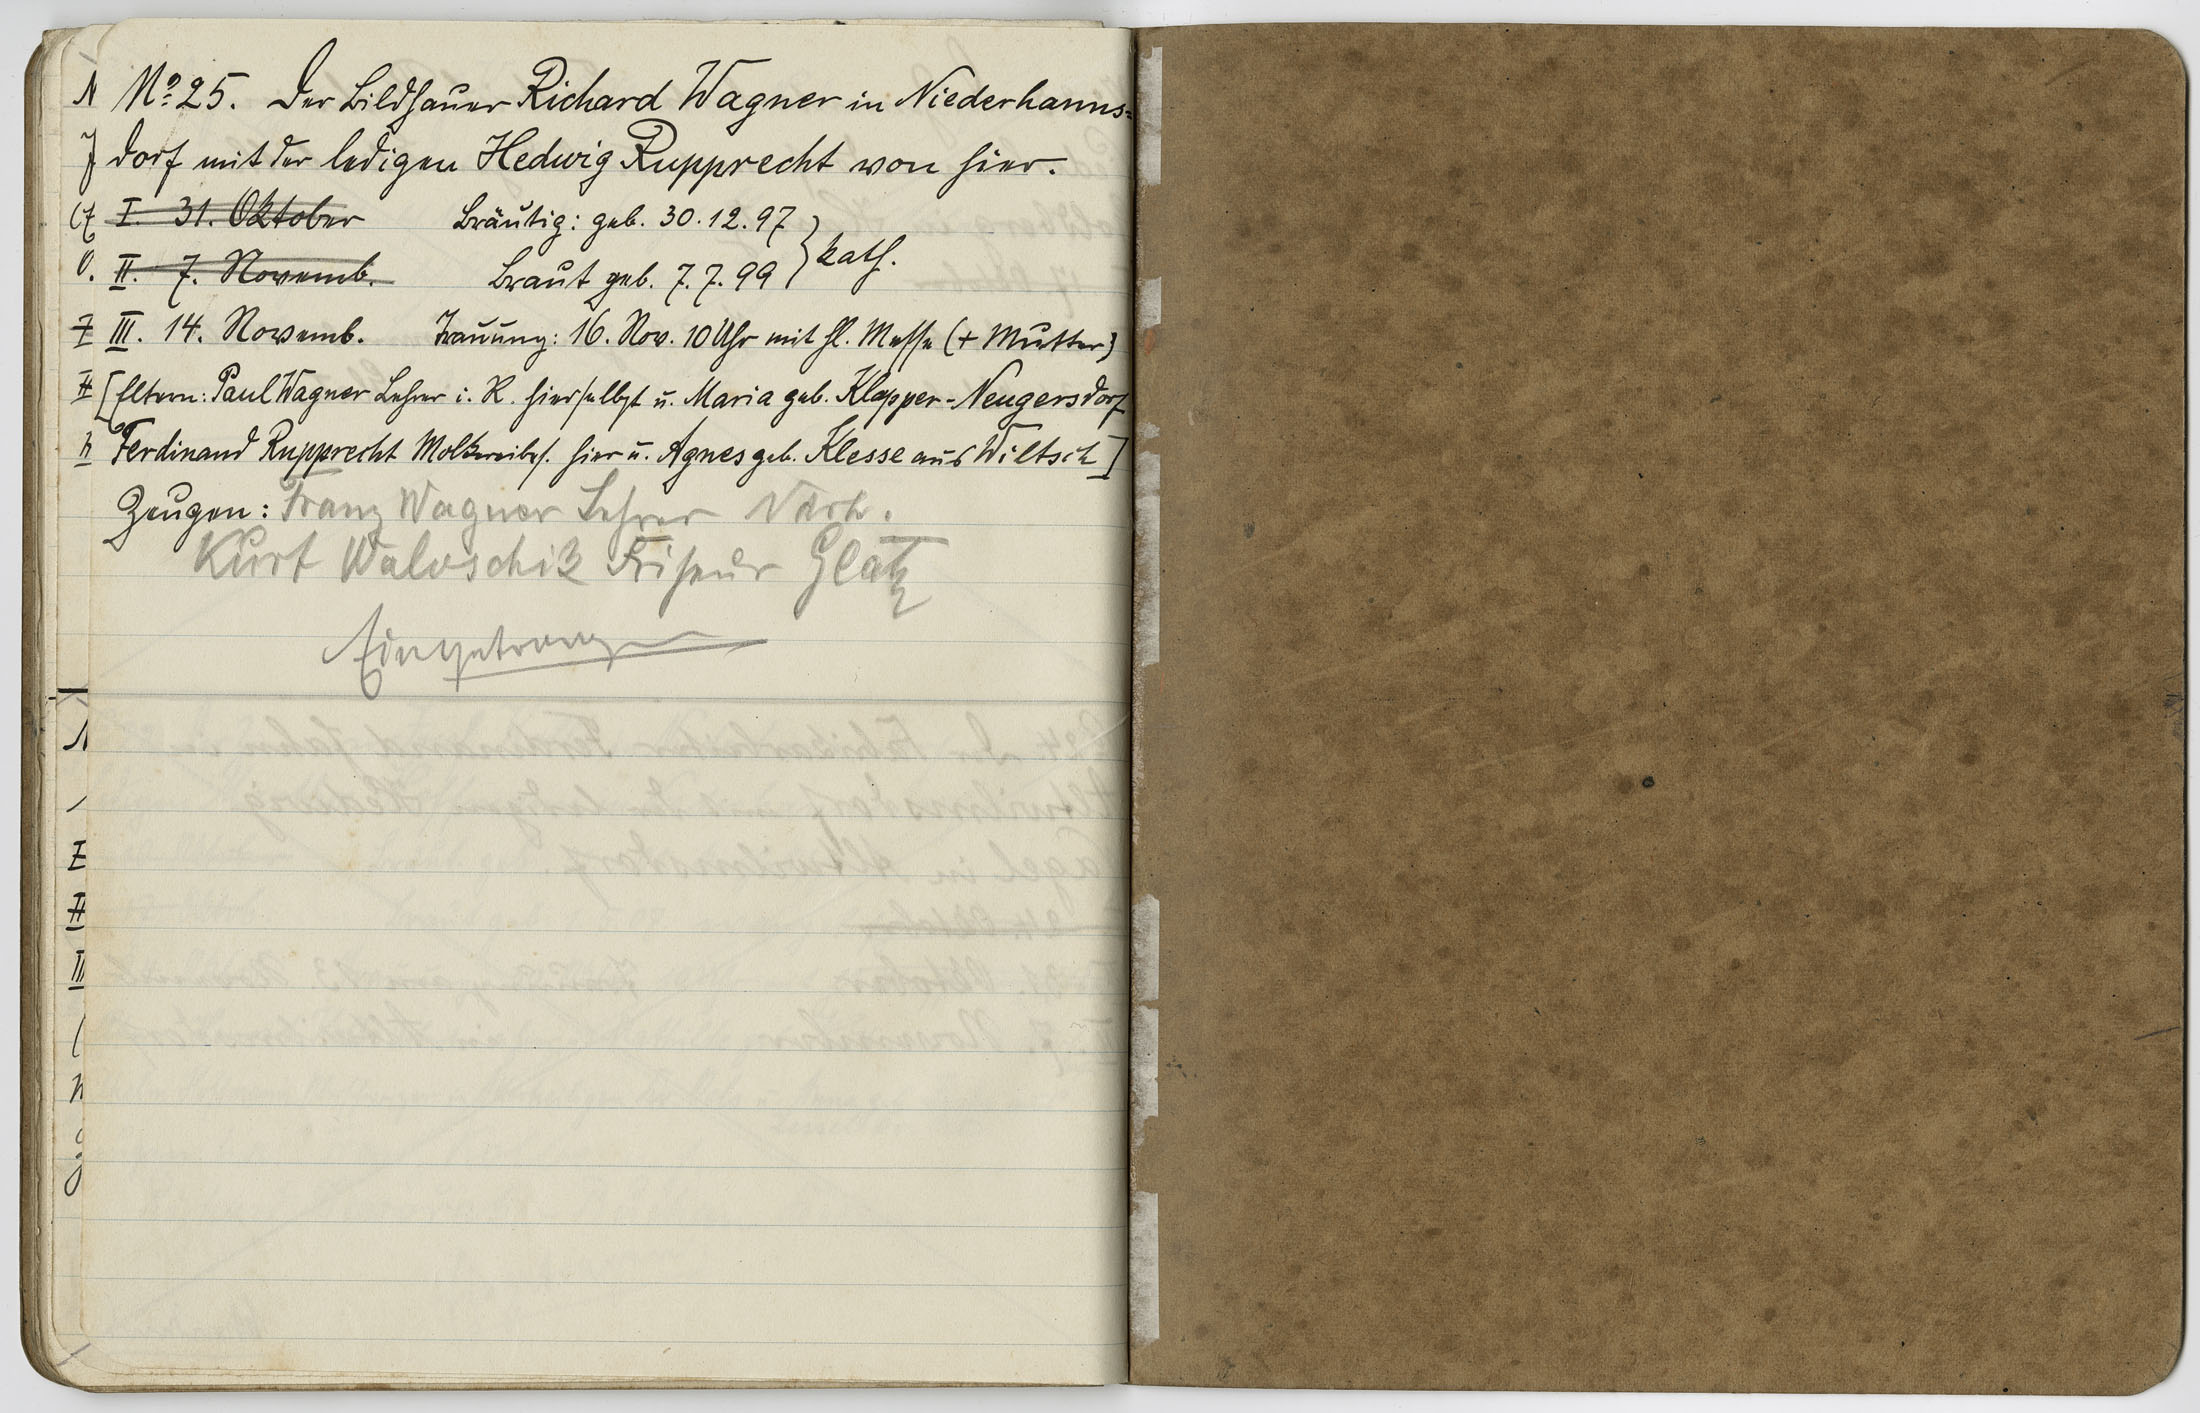 No 25. Der Bildhauer Richard Wagner in Niederhanns-
dorf mit der ledigen Hedwig Rupprecht von hier.
I. 31. Oktober Bräutig: geb. 30.12.97
II. 7. Novemb. Braut geb. 7.7.99 } kath.
III. 14. Novemb. Trauung: 16. Nov. 10 Uhr mit hl. Messe (+ Mutter)
[Eltern: Paul Wagner Lehrer i. R. hierselbst u. Maria geb. Klapper-Neugersdorf
Ferdinand Rupprecht Molkereibes. hier u. Agnes geb. Klesse aus Wiltsch]
Zeugen: Franz Wagner Lehrer
Kurt Waloschik Friseur Glatz
Eingetragen